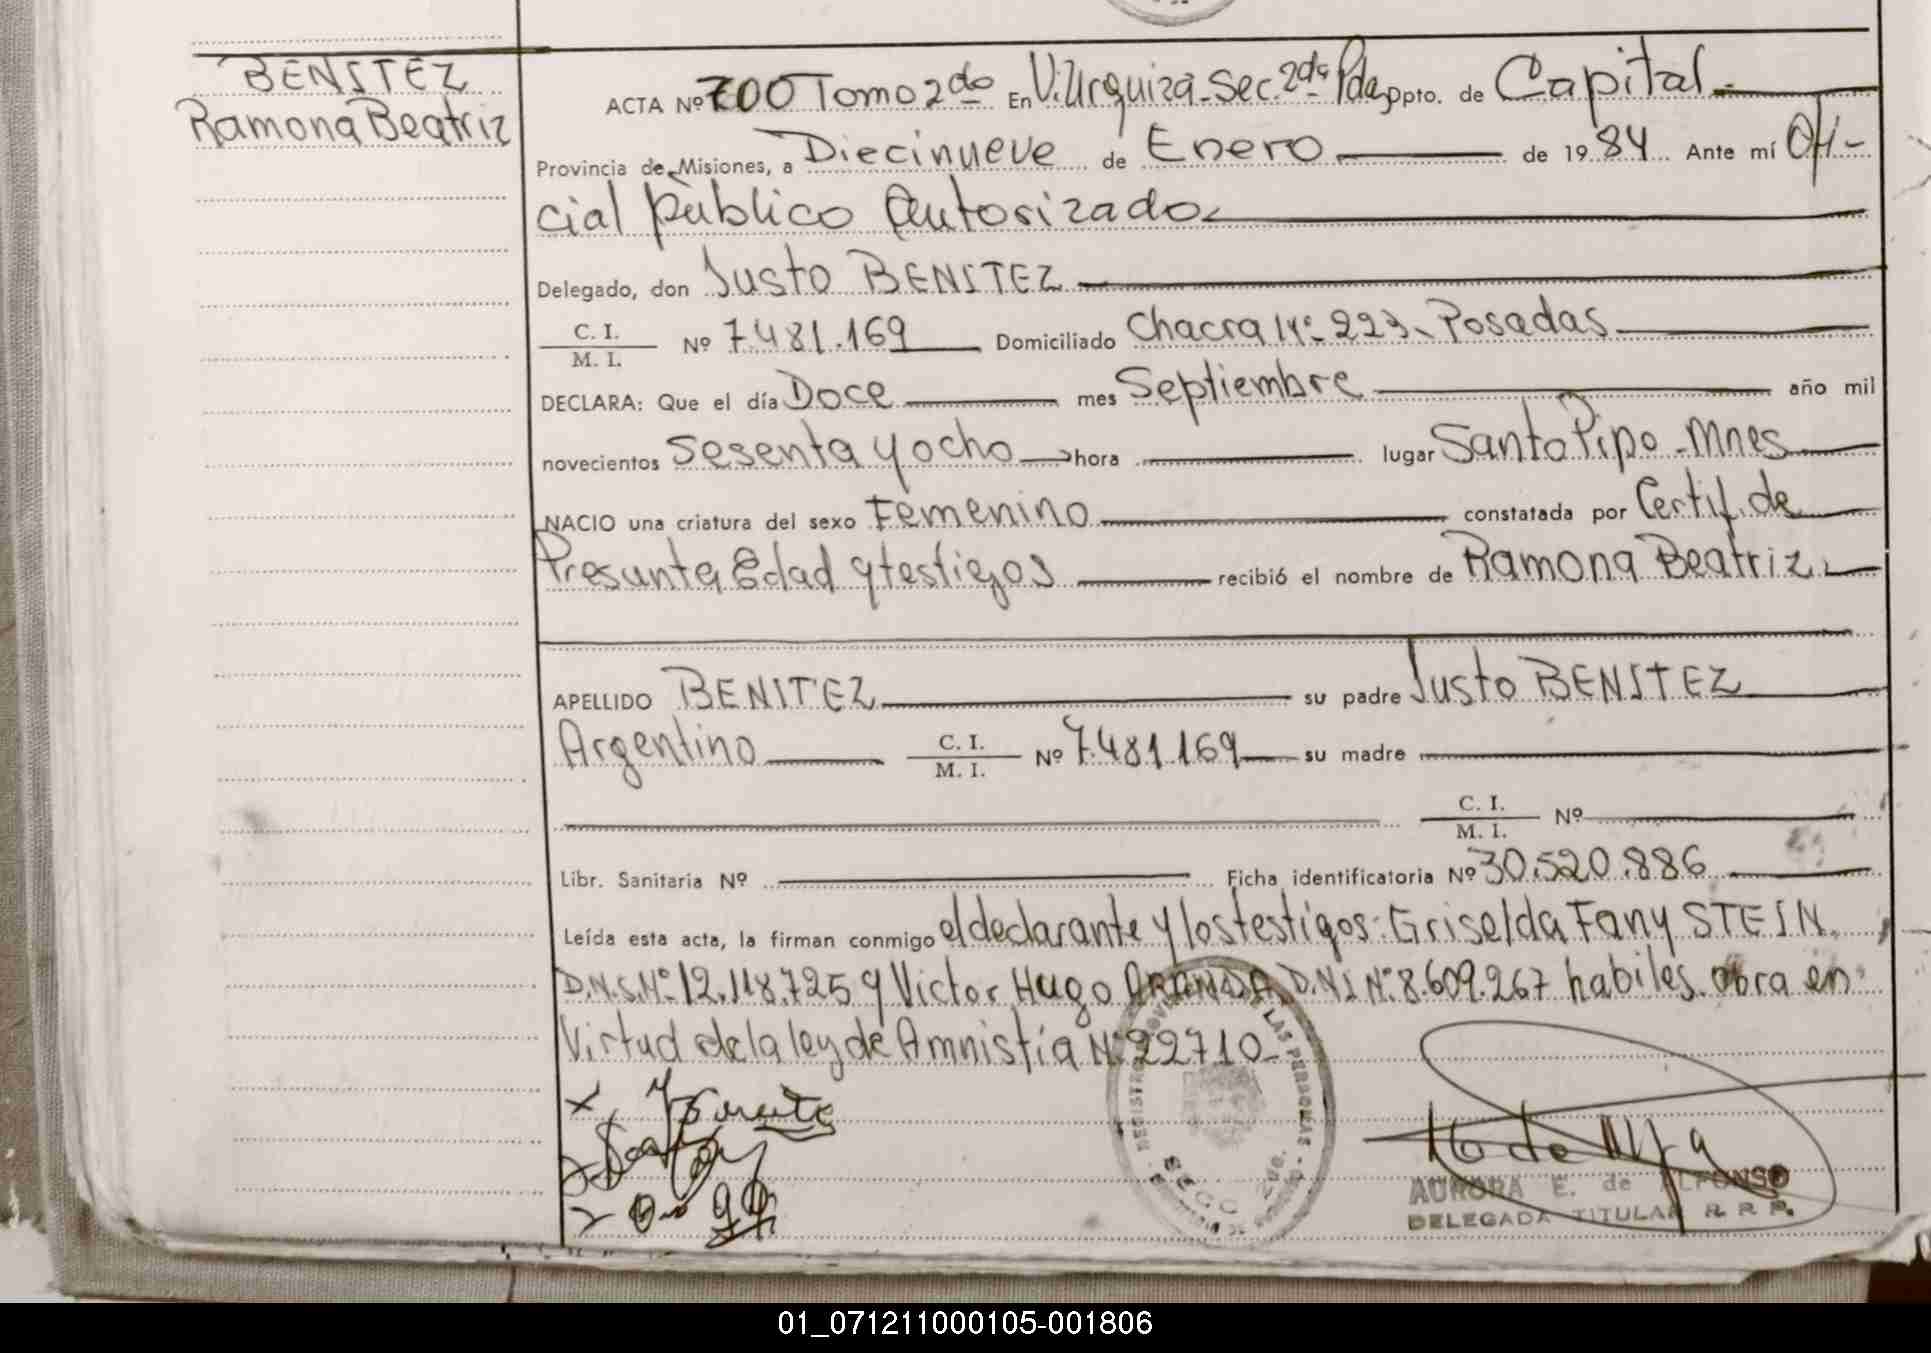 BENITEZ
Ramona Beatriz
ACTA Nº 700 Tomo 2do En V. Urquiza - Sec. 2da Pdas Dpto. de Capital.-
Provincia de Misiones, a Diecinueve de Enero de 1984 Ante mí Ofi-
cial público Autorizado.
Delegado, don Justo BENITEZ
C. I.
M. I. Nº 7.481.169 Domiciliado Chacra Nº 223 - Posadas
DECLARA: Que el día Doce mes Septiembre año mil
novecientos sesenta y ocho hora lugar Santo Pipo - Mnes
NACIO una criatura del sexo Femenino constatada por Certif. de
Presunta Edad y testigos recibió el nombre de Ramona Beatriz.
APELLIDO BENITEZ su padre Justo BENITEZ
Argentino C. I.
M. I. Nº 7.481.169 su madre
C. I.
M. I. Nº
Libr. Sanitaria Nº Ficha identificatoria Nº 30.520.886
Leída esta acta, la firman conmigo el declarante y los testigos: Griselda Fany STEIN
D.N.I. Nº 12.118.725 y Victor Hugo ARANDA D.N.I Nº 8.609.267 habiles. obra en
Virtud de la ley de Amnistía Nº 22710-
AURORA E. de ALFONSO
DELEGADA TITULAR R. P. P.
01_071211000105-001806